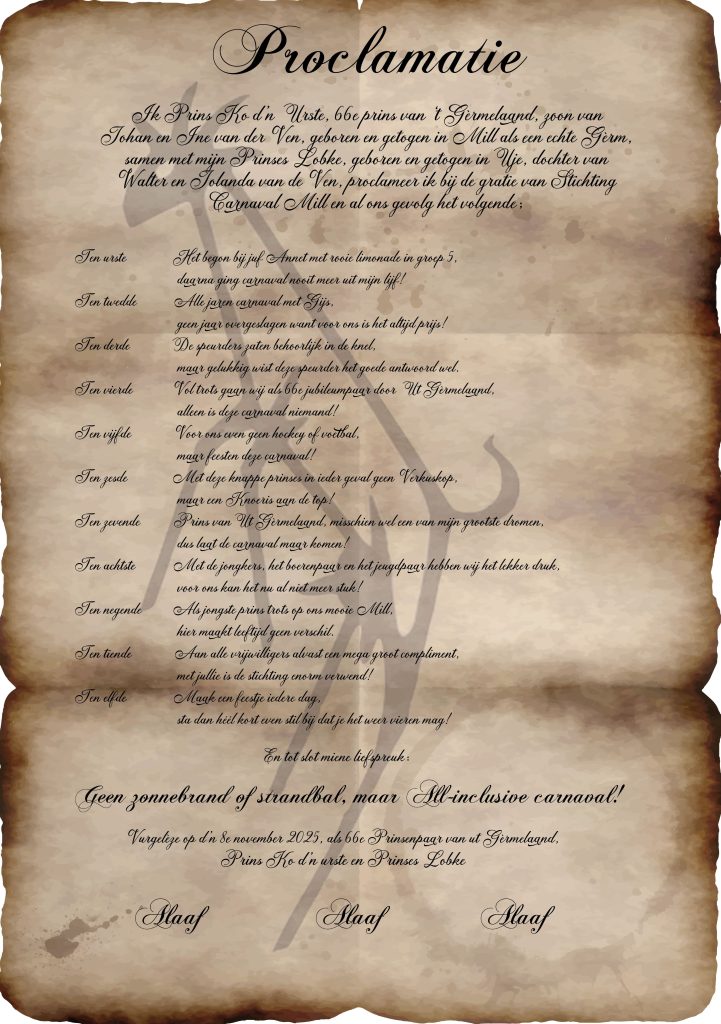 Proclamatie
Ik Prins Ko d'n Urste, 66e prins van 't Gèrmelaand, zoon van
Johan en Ine van der Ven, geboren en getogen in Mill als een echte Gèrm,
samen met mijn Prinses Lobke, geboren en getogen in Uje, dochter van
Walter en Jolanda van de Ven, proclameer ik bij de gratie van Stichting
Carnaval Mill en al ons gevolg het volgende;
Ten urste Het begon bij juf Annet met rooie limonade in groep 5,
daarna ging carnaval nooit meer uit mijn lijf!
Ten twedde Alle jaren carnaval met Gijs,
geen jaar overgeslagen want voor ons is het altijd prijs!
Ten derde De speurders zaten behoorlijk in de knel,
maar gelukkig wist deze speurder het goede antwoord wel.
Ten vierde Vol trots gaan wij als 66e jubileumpaar door Ut Gèrmelaand,
alleen is deze carnaval niemand!
Ten vijfde Voor ons even geen hockey of voetbal,
maar feesten deze carnaval!
Ten zesde Met deze knappe prinses in ieder geval geen Verkuskop,
maar een Knoeris aan de top!
Ten zevende Prins van Ut Gèrmelaand, misschien wel een van mijn grootste dromen,
dus laat de carnaval maar komen!
Ten achtste Met de jongkers, het boerenpaar en het jeugdpaar hebben wij het lekker druk,
voor ons kan het nu al niet meer stuk!
Ten negende Als jongste prins trots op ons mooie Mill,
hier maakt leeftijd geen verschil.
Ten tiende Aan alle vrijwilligers alvast een mega groot compliment,
met jullie is de stichting enorm verwend!
Ten elfde Maak een feestje iedere dag,
sta dan hèèl kort even stil bij dat je het weer vieren mag!
En tot slot miene liefspreuk:
Geen zonnebrand of strandbal, maar All-inclusive carnaval!
Vurgeleze op d'n 8e november 2025, als 66e Prinsenpaar van ut Gèrmelaand,
Prins Ko d'n urste en Prinses Lobke
Alaaf Alaaf Alaaf